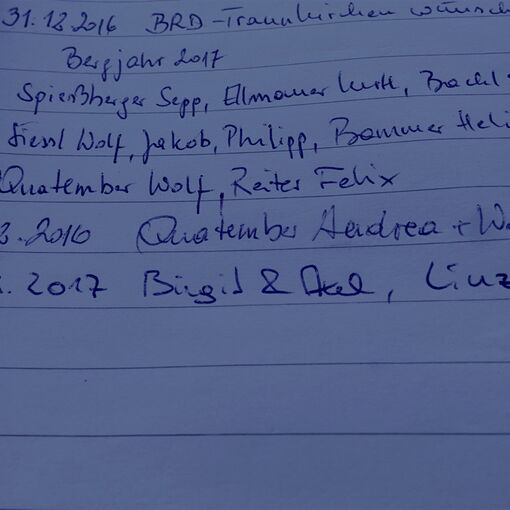 31.12.2016 BRD-Traunkirchen wünsch
Bergjahr 2017
Spießberger Sepp, Ellmauer Kurt,
Wolf, Jakob, Philipp, Bammer Heli
Quatember Wolf, Reiter Felix
.2016 Quatember Andrea + W
. 2017 Birgit & Axel, Linz